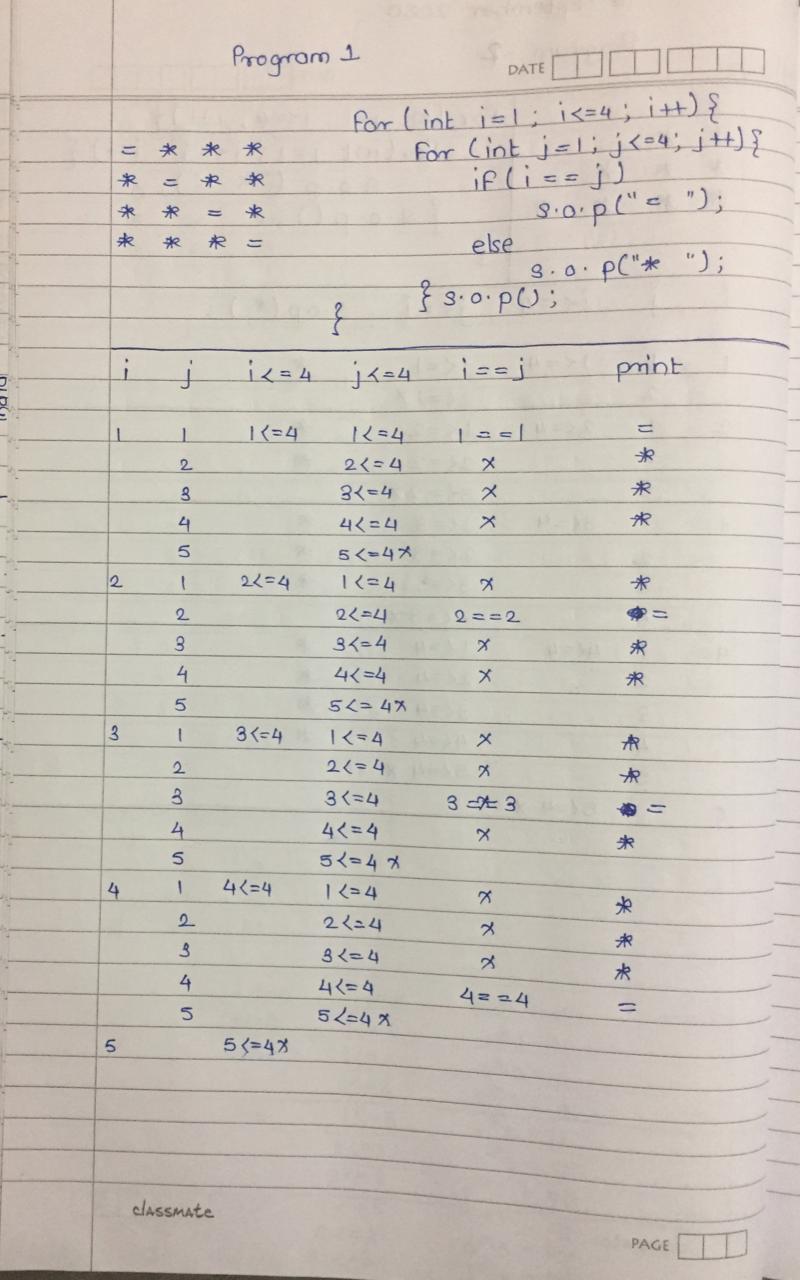 Program 1
DATE
for (int i=1; i<=4; i++) {
= * * * for (int j=1; j<=4; j++) {
* = * * if (i == j)
* * = * s.o.p("= ");
* * * = else
s.o.p("* ");
} s.o.p();
}
i j i<=4 j<=4 i==j print
1 1 1<=4 1<=4 1==1 =
2 2<=4 x *
3 3<=4 x *
4 4<=4 x *
5 5<=4 x
2 1 2<=4 1<=4 x *
2 2<=4 2==2 =
3 3<=4 x *
4 4<=4 x *
5 5<=4 x
3 1 3<=4 1<=4 x *
2 2<=4 x *
3 3<=4 3==3 =
4 4<=4 x *
5 5<=4 x
4 1 4<=4 1<=4 x *
2 2<=4 x *
3 3<=4 x *
4 4<=4 4==4 =
5 5<=4 x
5 5<=4 x
classmate
PAGE